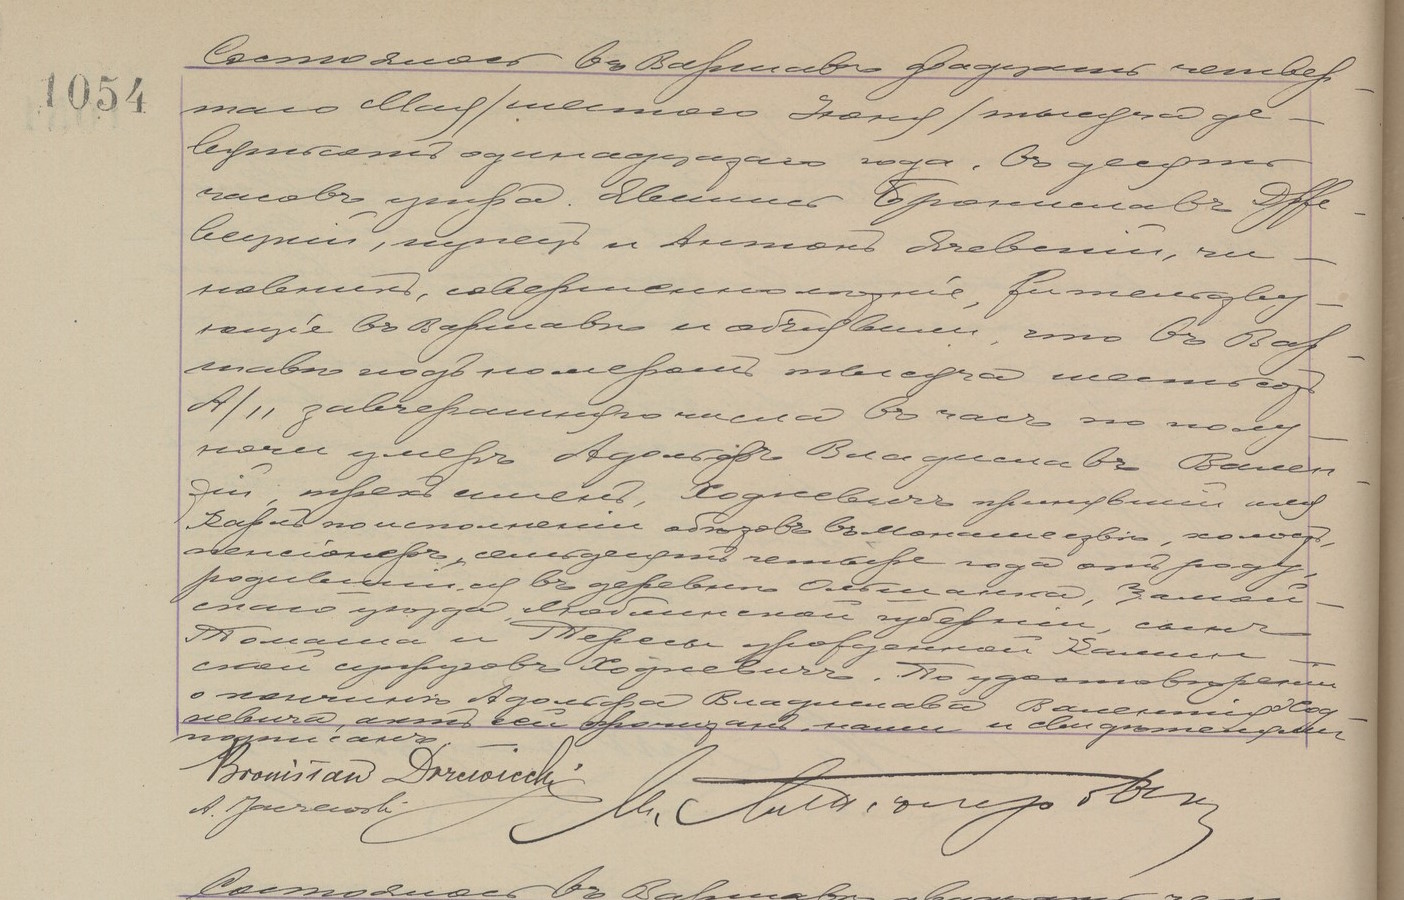 1054
Состоялось въ Варшавѣ двадцать четвер-
таго Мая /шестого Іюня/ тысяча де-
вятьсотъ одинадцатаго года, въ десять
часовъ утра. Явились Брониславъ
купецъ и Антонъ Ячевскій, чи-
новникъ, совершеннолѣтніе, жительству-
ющіе въ Варшавѣ и объявили, что въ Вар-
шавѣ подъ номеромъ тысяча шестьсотъ
А/11 завчерашняго числа въ часъ по полу-
ночи умеръ Адольфъ Владиславъ Вален-
тій, трехъ именъ, Ходкевичъ принявшій имя
Карлъ по исполненіи въ монашествѣ, холостъ,
пенсіонеръ, семьдесятъ четыре года отъ роду,
родившійся въ деревнѣ Ольшанка, Замой-
скаго уѣзда, Люблинской губерніи, сынъ
Томаша и Тересы урожденной
супруговъ Ходкевичъ. По удостовѣреніи
о кончинѣ Адольфа Владислава Валентія Ход-
кевича, актъ сей прочитанъ, нами и свидѣтелями
подписанъ.
Bronisław Drzewiecki
A. Jaczewski
Состоялось въ Варшавѣ двадцать чет